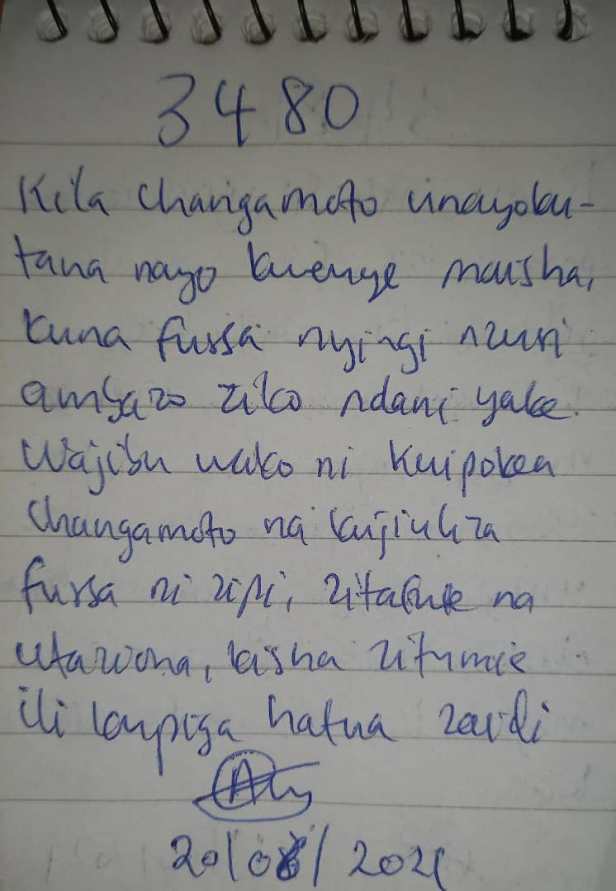 3480
Kila changamoto unayoku-
tana nayo kwenye maisha,
kuna fursa nyingi nzuri
ambazo ziko ndani yake.
Wajibu wako ni kuipokea
changamoto na kujiuliza
fursa ni zipi, zitafute na
utaziona, kisha zitumie
ili kupiga hatua zaidi
20/08/2021